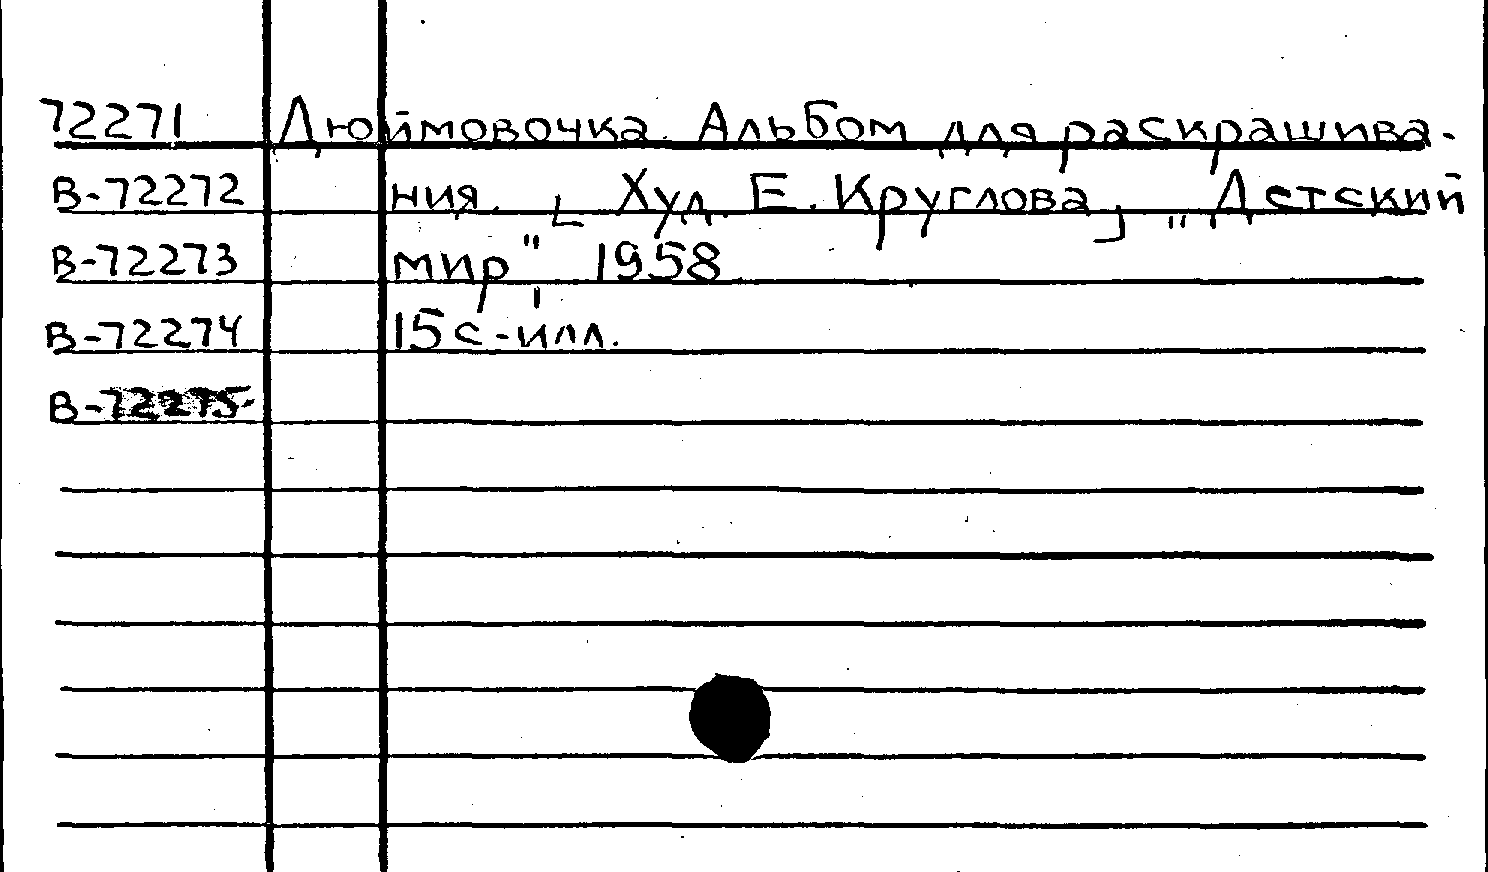 72271 Дюймовочка. Альбом для раскрашива-
В-72272 ния. [Худ. Е. Круглова] „Детский
В-72273 мир" 1958
В-72274 15с-илл.
В-72275